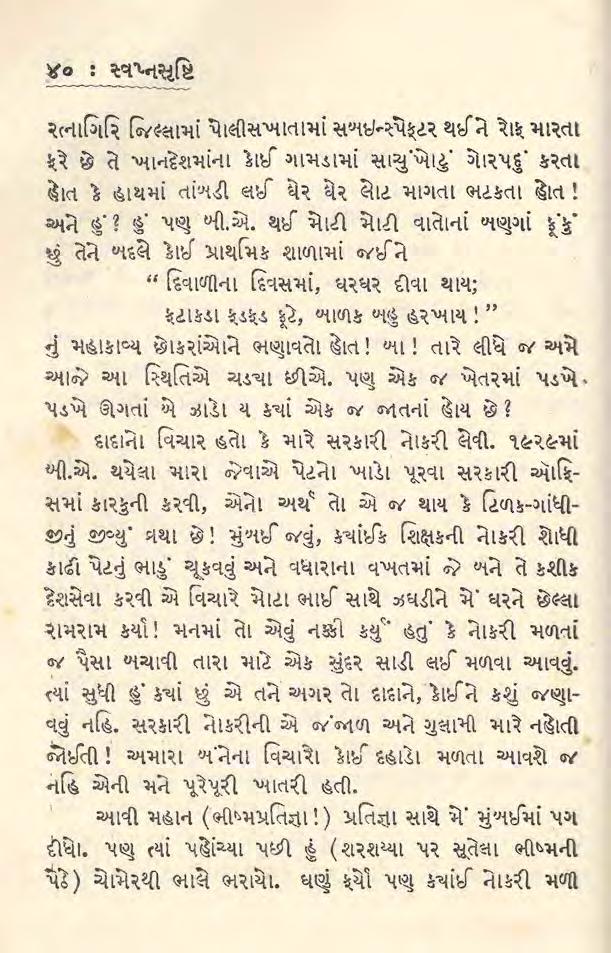 ૪૦ : સ્વપ્નસૃષ્ટિ
રત્નાગિરિ જિલ્લામાં પોલીસખાતામાં સબઇન્સ્પેક્ટર થઈ ને રોફ મારતા
ફરે છે તે ખાનદેશમાંના કોઈ ગામડામાં સાચુંખોટું ગોરપદું કરતા
હોત કે હાથમાં તાંબડી લઈ ઘેર ઘેર લોટ માગતા ભટકતા હોત !
અને હું ? હું પણ બી.એ. થઈ મોટી મોટી વાતોનાં બણગાં ફૂંકું
છું તેને બદલે કોઈ પ્રાથમિક શાળામાં જઈ ને
“ દિવાળીના દિવસમાં, ઘરઘર દીવા થાય;
ફટાકડા ફડફડ ફૂટે, બાળક બહુ હરખાય ! ”
નું મહાકાવ્ય છોકરાંઓને ભણાવતો હોત! બા ! તારે લીધે જ અમે
આજે આ સ્થિતિએ ચડ્યા છીએ. પણ એક જ ખેતરમાં પડખે
પડખે ઊગતાં બે ઝાડો ય ક્યાં એક જ જાતનાં હોય છે ?
દાદાનો વિચાર હતો કે મારે સરકારી નોકરી લેવી. ૧૯૨૯માં
બી.એ. થયેલા મારા જેવાએ પેટનો ખાડો પૂરવા સરકારી ઑફિ-
સમાં કારકુની કરવી, એનો અર્થ તો એ જ થાય કે ટિળક-ગાંધી-
જીનું જીવ્યું વ્રથા છે! મુંબઈ જવું, ક્યાંઈક શિક્ષકની નોકરી શોધી
કાઢી પેટનું ભાડું ચૂકવવું અને વધારાના વખતમાં જે બને તે કશીક
દેશસેવા કરવી એ વિચારે મોટા ભાઈ સાથે ઝઘડીને મેં ઘરને છેલ્લા
રામરામ કર્યા! મનમાં તો એવું નક્કી કર્યું હતું કે નોકરી મળતાં
જ પૈસા બચાવી તારા માટે એક સુંદર સાડી લઈ મળવા આવવું.
ત્યાં સુધી હું ક્યાં છું એ તને અગર તો દાદાને, કોઈને કશું જણા-
વવું નહિ. સરકારી નોકરીની એ જંજાળ અને ગુલામી મારે નહોતી
જોઈતી ! અમારા બંનેના વિચારો કોઈ દહાડો મળતા આવશે જ
નહિ એની મને પૂરેપૂરી ખાતરી હતી.
આવી મહાન (ભીષ્મપ્રતિજ્ઞા !) પ્રતિજ્ઞા સાથે મેં મુંબઈમાં પગ
દીધો. પણ ત્યાં પહોંચ્યા પછી હું (શરશય્યા પર સુતેલા ભીષ્મની
પેઠે) ચોમેરથી ભાલે ભરાયો. ઘણું ફર્યો પણ ક્યાંઈ નોકરી મળી